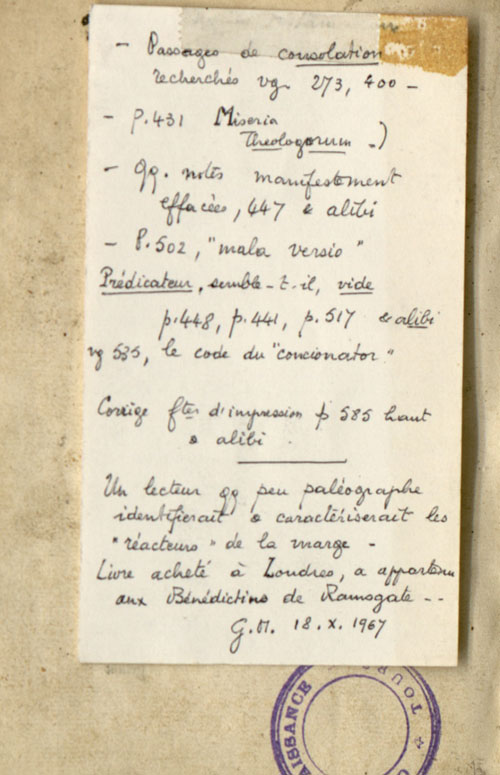 - Passages de consolation
recherchés vg. 273, 400 -
- p.431 Miseria
Theologorum -)
- qq. notes manifestement
effacées, 447 & alibi
- P.502, "mala versio"
Prédicateur, semble-t-il, vide
p.448, p.441, p.517 & alibi
vg 535, le code du "concionator"
Corrige ftes d'impression p 585 haut
& alibi.
Un lecteur qq peu paléographe
identifierait & caractériserait les
"réacteurs" de la marge -
Livre acheté à Londres, a appartenu
aux Bénédictins de Ramsgate --
G.M. 18.X.1967
AISSANCE
TOUR